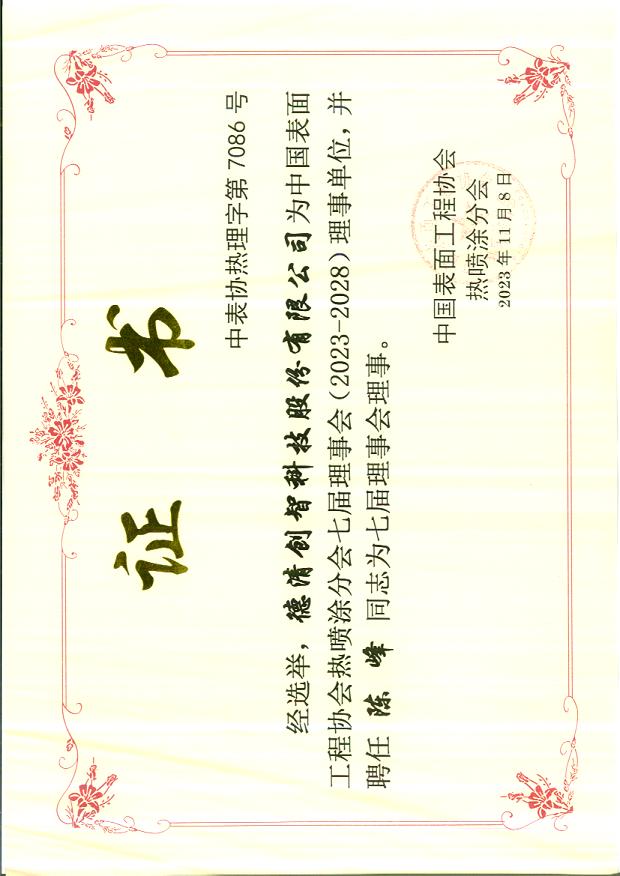 证书
中表协热理字第 7086 号
经选举，德清创智科技股份有限公司为中国表面
工程协会热喷涂分会七届理事会（2023-2028）理事单位，并
聘任 陈峰 同志为七届理事会理事。
中国表面工程协会
热喷涂分会
2023 年 11 月 8 日